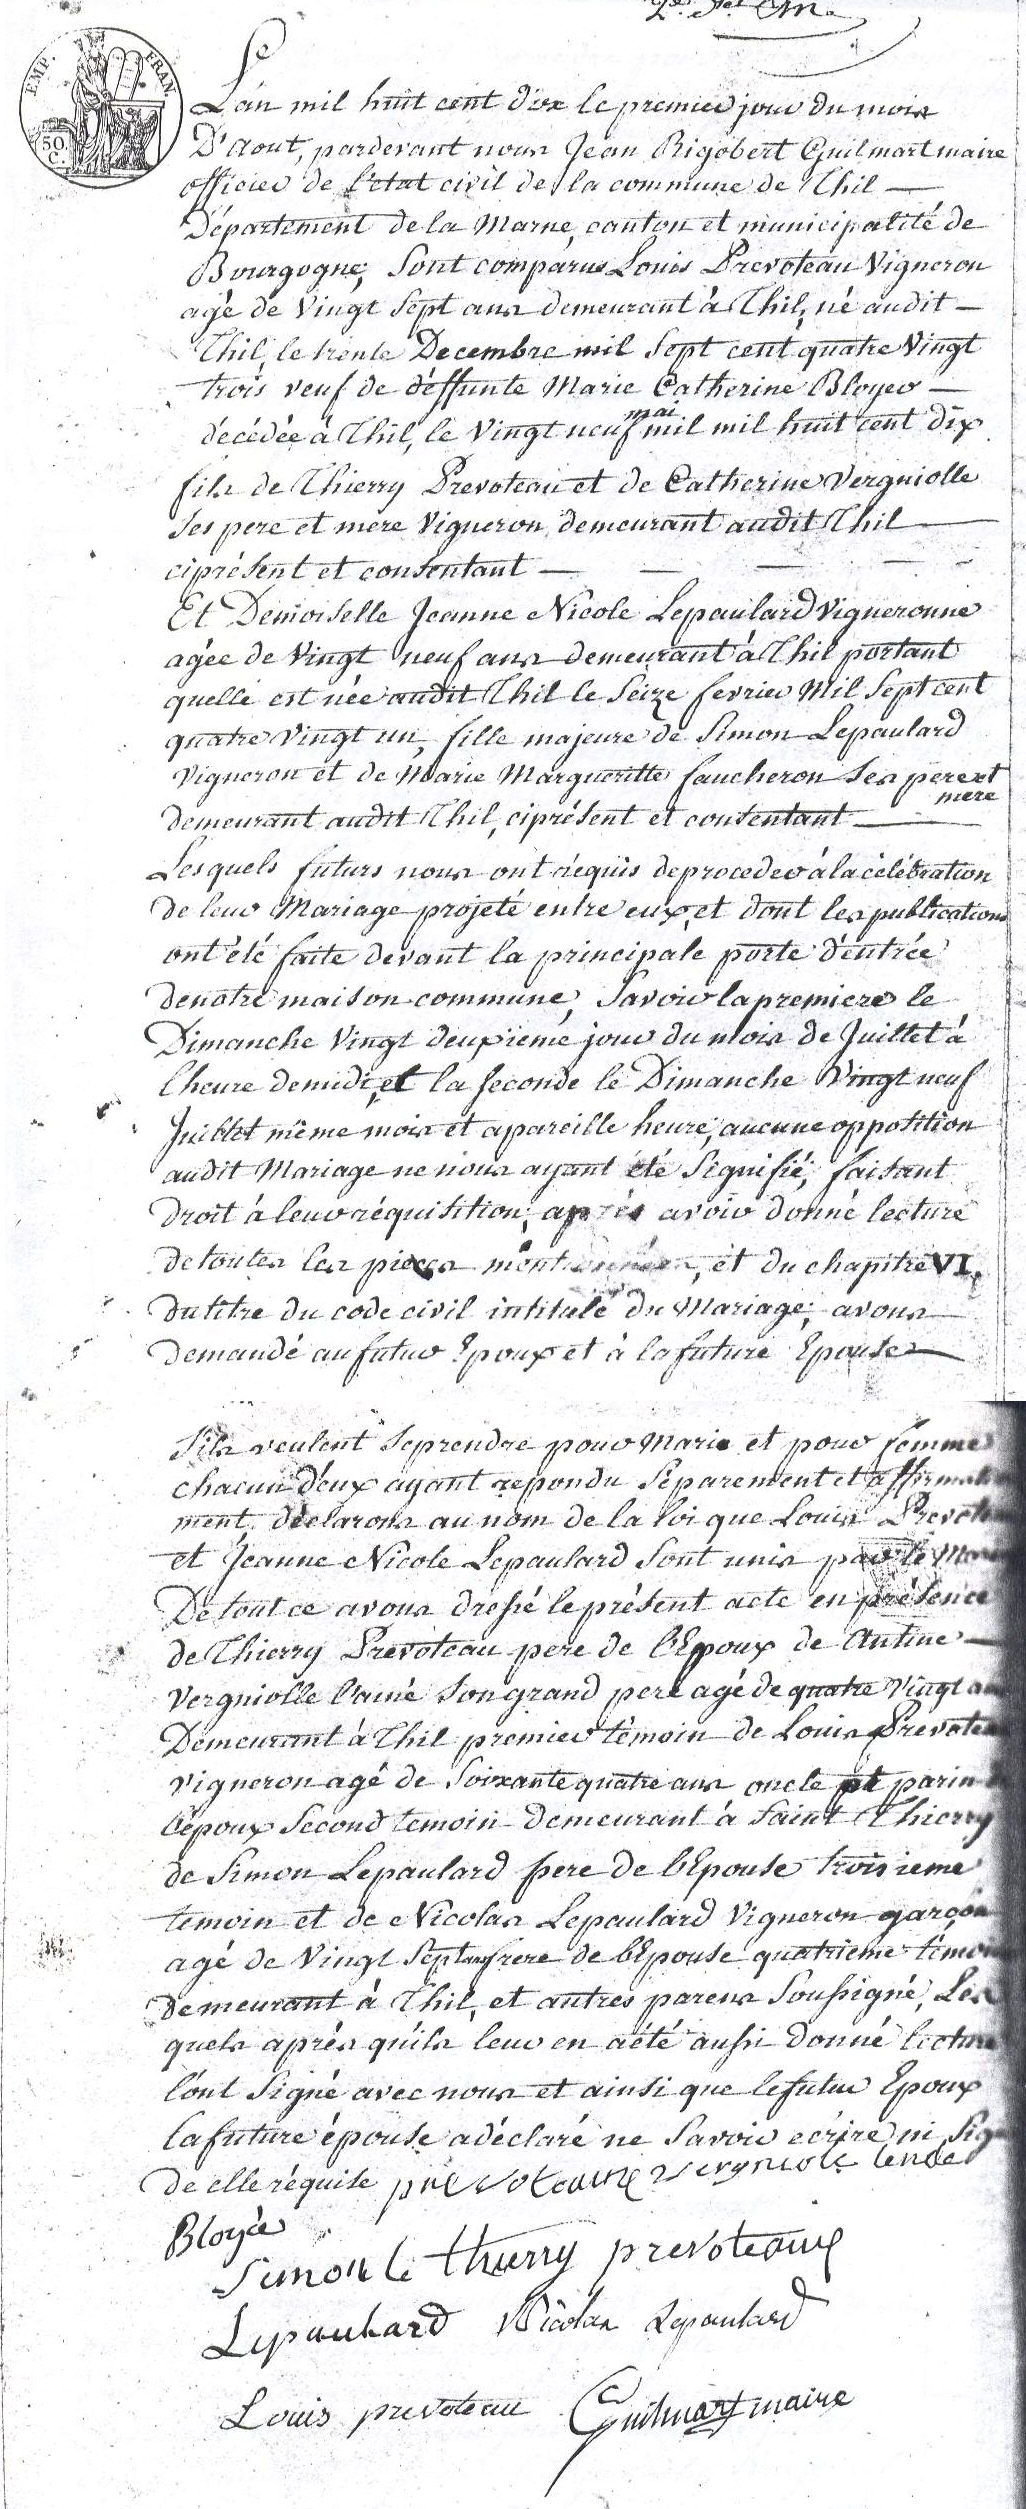 EMP. FRAN.
50.
C.
L'an mil huit cent dix le premier jour du mois
D'Aout, pardevant nous Jean Rigobert Guilmart maire
officier de l'etat civil de la commune de Thil —
Département de la Marne, canton et municipalité de
Bourgogne, Sont comparus Louis Prevoteau Vigneron
agé de Vingt Sept ans demeurant à Thil, né audit —
Thil, le trente Decembre mil Sept cent quatre Vingt
trois veuf de déffunte Marie Catherine Bloyer —
décédée à Thil, le Vingt neuf mai mil mil huit cent dix
fils de Thierry Prevoteau et de Catherine Vergniolle
Ses pere et mere Vigneron demeurant audit Thil —
ciprésent et consentant — — — —
Et Demoiselle Jeanne Nicole Lepaulard Vigneronne
agée de Vingt neuf ans demeurant à Thil portant
quelle est née audit Thil le Seize fevrier Mil Sept cent
quatre Vingt un, fille majeure de Simon Lepaulard
Vigneron et de Marie Margueritte faucheron Ses pere et
mere
demeurant audit Thil, ciprésent et consentant —
Lesquels futurs nous ont réquis de proceder à la célébration
de leur Mariage projeté entre eux, et dont les publications
ont été faite devant la principale porte d'éntrée
de notre maison commune, Savoir la premiere le
Dimanche Vingt deuxième jour du mois de Juillet à
l'heure de midi, et la seconde le Dimanche Vingt neuf
Juillet même mois et apareille heure, aucune oppotition
audit Mariage ne nous ayant été Signifié; faisant
droit à leur réquisition; aprés avoir donné lecture
de toutes les pieces mentionnées, et du chapitre VI.
du titre du code civil intitulé du Mariage, avons
demandé au futur Epoux et à la future Epouse —
S'ils veulent Se prendre pour Marie et pour femme
chacun d'eux ayant repondu Séparement et affirmati
ment, déclarons au nom de la loi que Louis Prevote
et Jeanne Nicole Lepaulard Sont unis par le Mar
De tout ce avons dressé le présent acte en présence
de Thierry Prevoteau pere de l'Epoux de Antine —
Vergniolle l'ainé Son grand pere agé de quatre Vingt an
Demeurant à Thil premier témoin de Louis Prevotea
Vigneron agé de Soixante quatre ans oncle et parin
l'époux Second temoin demeurant à Saint Thierry
de Simon Lepaulard pere de l'Epouse troisieme
temoin et de Nicolas Lepaulard Vigneron garçon
agé de Vingt Sept ans frere de l'Epouse quatrieme témoi
demeurant à Thil, et autres parens Soussigné, Les
quels aprés qu'ils leur en a été aussi donné lecture
l'ont Signé avec nous et ainsi que le futur Epoux
la future épouse a déclaré ne Savoir ecrire ni Sig
de elle réquise prevoteaux vergniole lenée
Bloyée
Simon le thierry prevoteaux
Lepaulard Nicolas Lepaulard
Louis prevoteau Guilmart maire